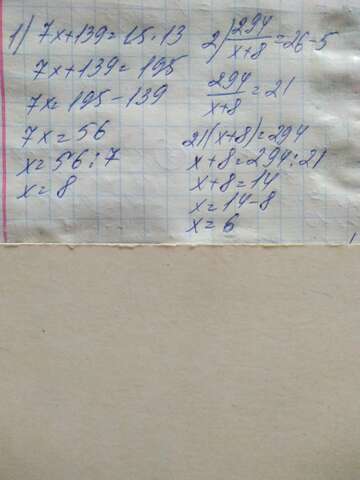 1) 7x+139=15·13
7x+139=195
7x=195-139
7x=56
x=56:7
x=8
2) 294/(x+8)=26-5
294/(x+8)=21
21(x+8)=294
x+8=294:21
x+8=14
x=14-8
x=6